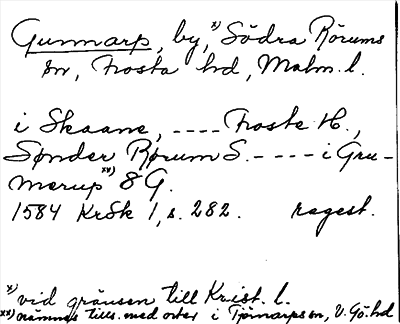 Gunnarp, by, x) Södra Rörums
sn, Frosta hd, Malm. l.
i Skaane, ---- Froste H.,
Sønder Rørum S. ---- i Gru-
nerup xx) 8 G.
1584 KrSk 1, s. 282. ragest.
x) vid gränsen till Krist. l.
xx) nämnes tills. med orter i Tjörnarps sn, V. Gö. hd